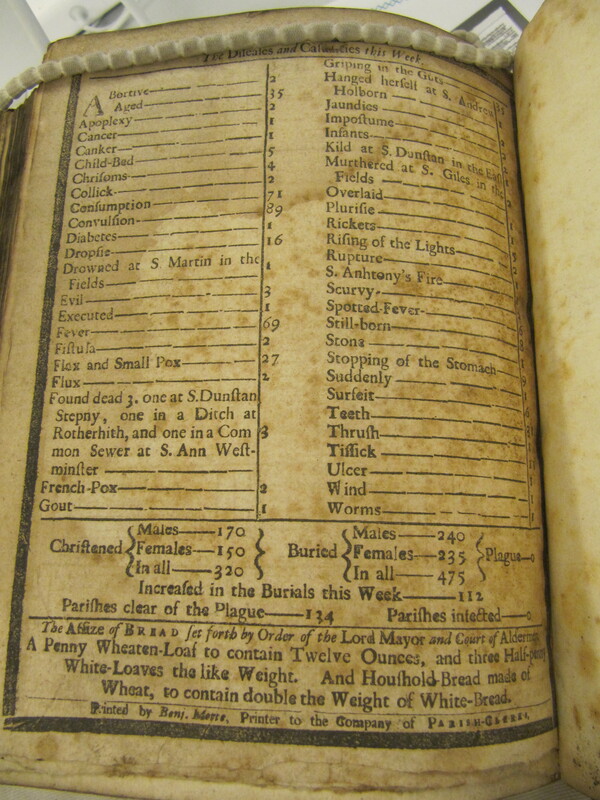 The Diseases and Casualties this Week.
Abortive 2
Aged 35
Apoplexy 2
Cancer 1
Canker 1
Child-Bed 5
Chrisoms 4
Collick 2
Consumption 71
Convulsion 89
Diabetes 1
Dropsie 16
Drowned at S Martin in the
Fields 1
Evil 3
Executed 1
Fever 69
Fistula 2
Flox and Small Pox 27
Flux 2
Found dead 3. one at S.Dunstan
Stepny, one in a Ditch at
Rotherhith, and one in a Com
mon Sewer at S. Ann West-
minster 3
French-Pox 2
Gout 1
Griping in the Guts
Hanged herself at S. Andrew
Holborn
Jaundies
Impostume
Infants
Kild at S. Dunstan in the
Murthered at S. Giles in the
Fields
Overlaid
Plurisie
Rickets
Rising of the Lights
Rupture
S. Anhtony's Fire
Scurvy
Spotted-Fever
Still-born
Stone
Stopping of the Stomach
Suddenly
Surfeit
Teeth
Thrush
Tissick
Ulcer
Wind
Worms
Christened Males 170 Females 150 In all 320
Buried Males 240 Females 235 In all 475 Plague 0
Increased in the Burials this Week 112
Parishes clear of the Plague 134 Parishes infected 0
The Assize of BREAD set forth by Order of the Lord Mayor and Court of
A Penny Wheaten-Loaf to contain Twelve Ounces, and three Half-penny
White-Loaves the like Weight. And Houshold-Bread made of
Wheat, to contain double the Weight of White-Bread.
Printed by Benj. Motte, Printer to the Company of PARISH-CLERKS.